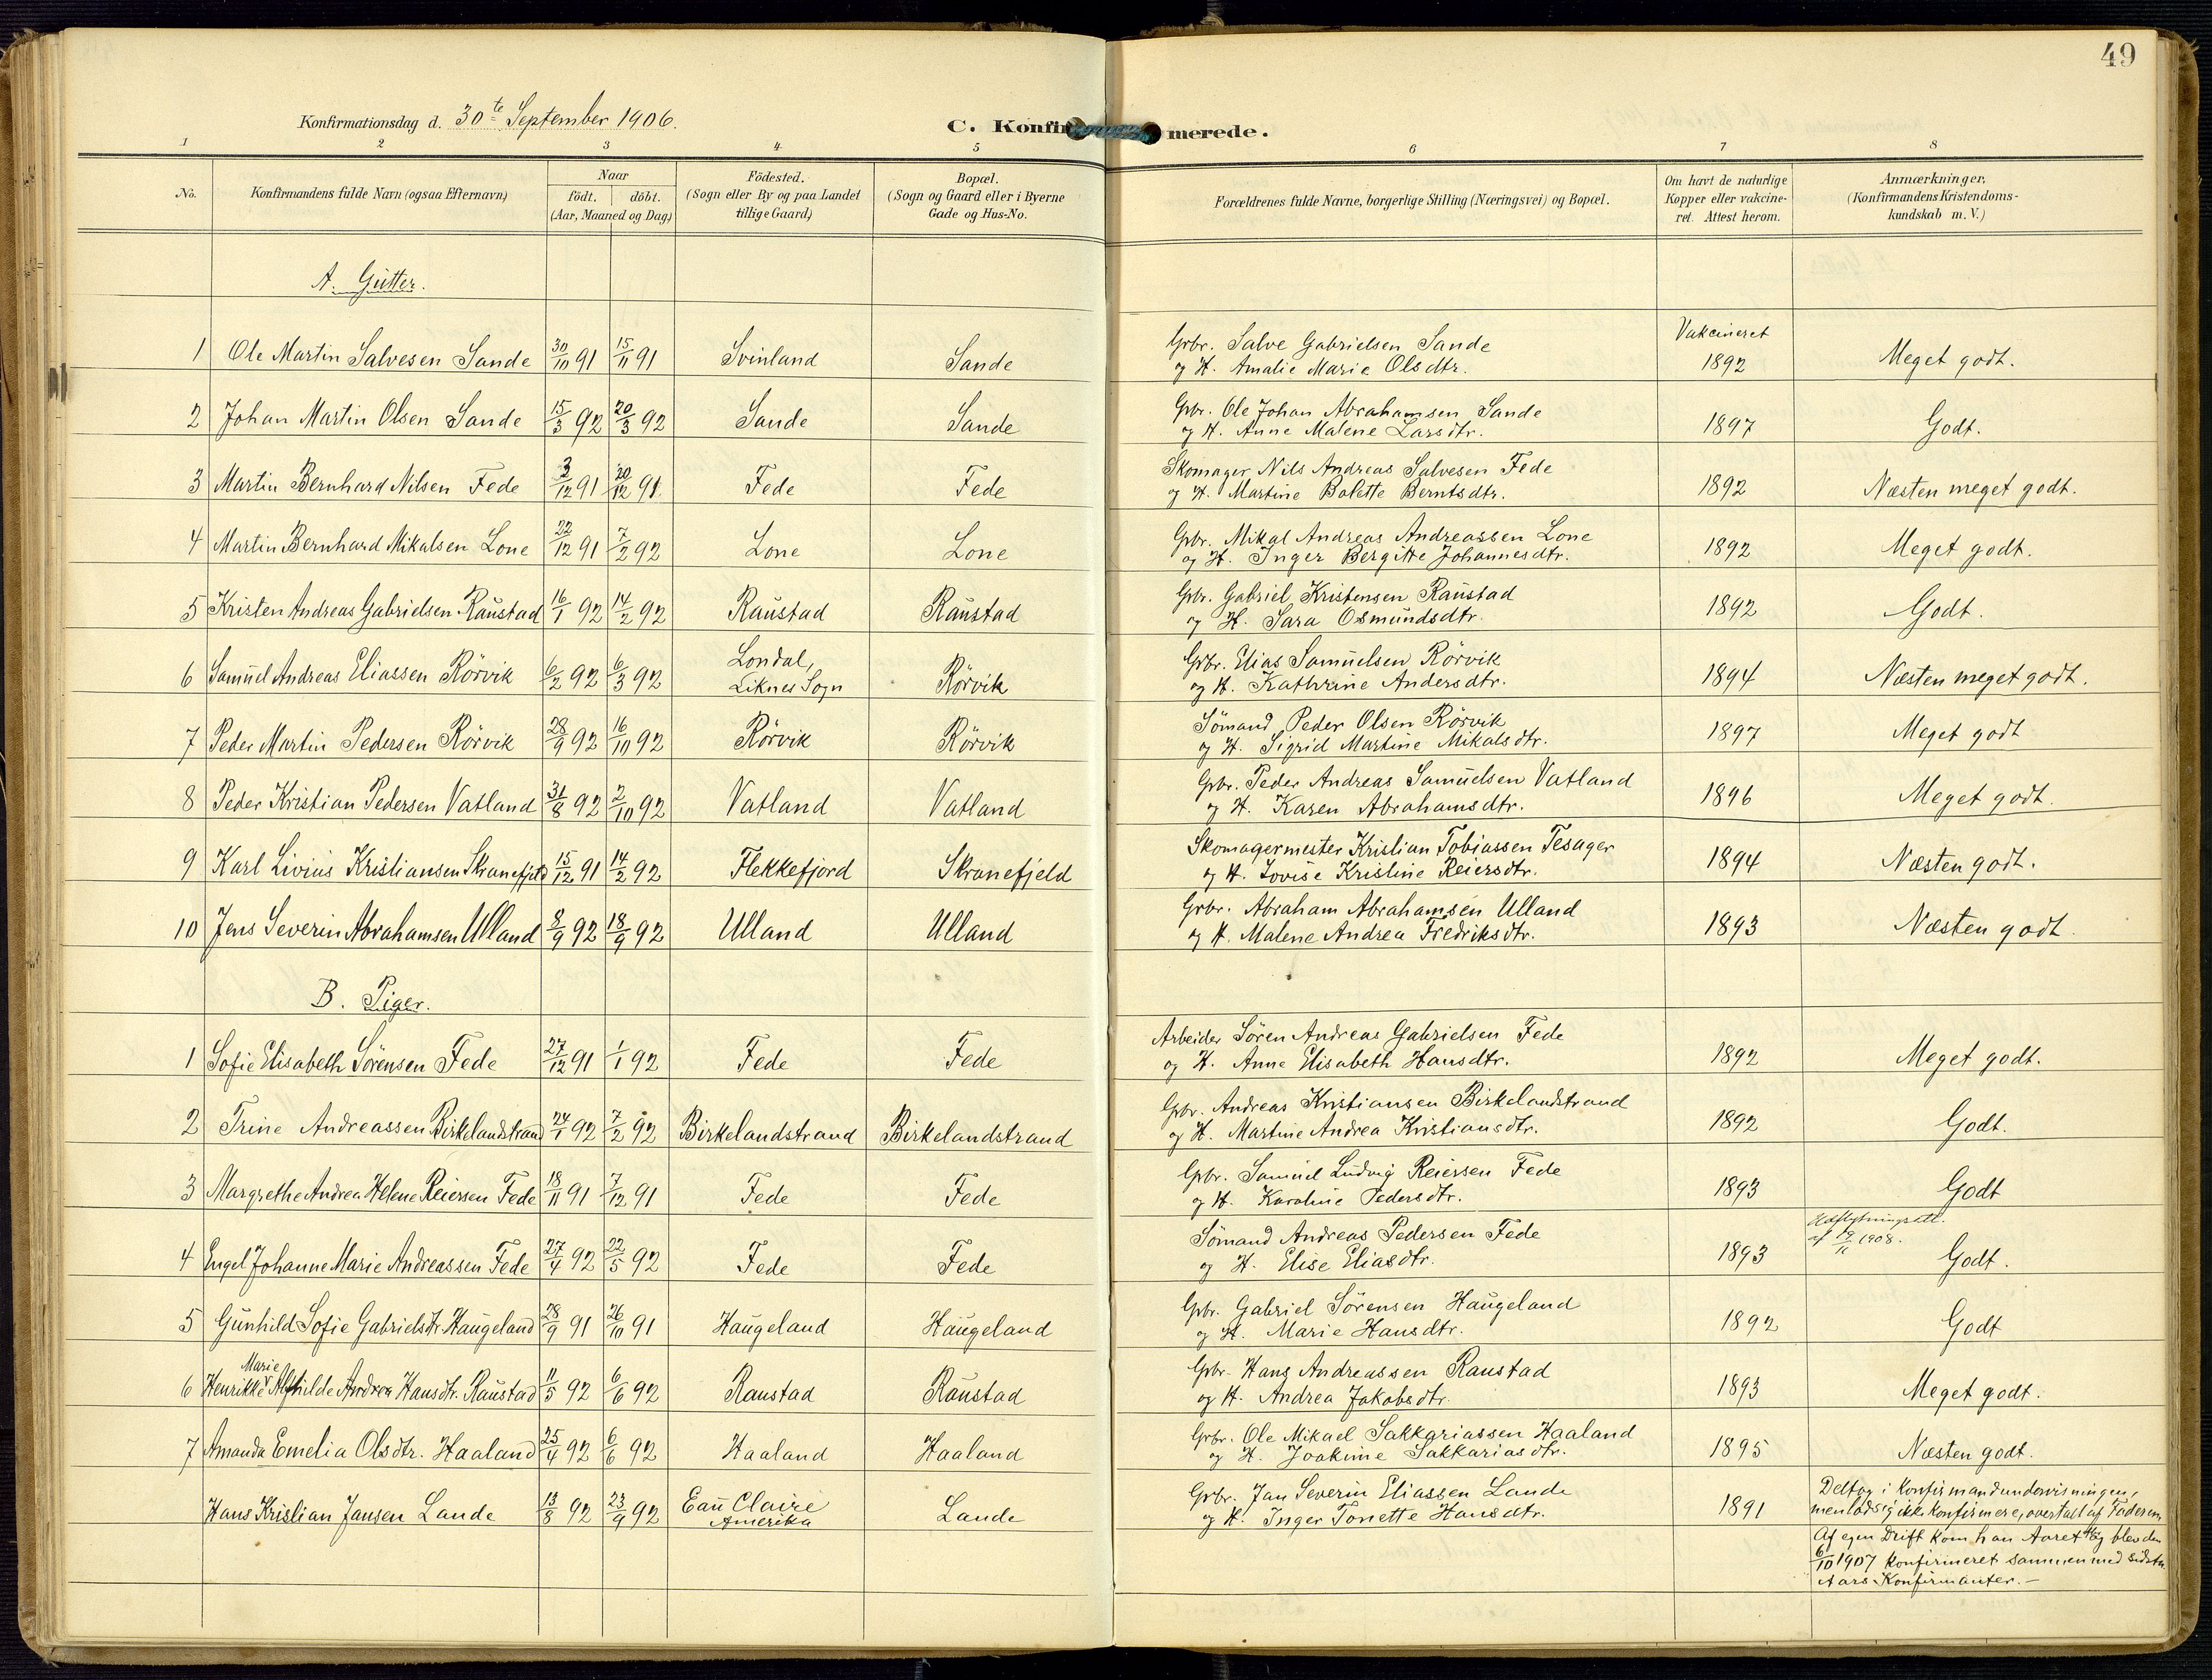 49
Konfirmationsdag d. 30te September 1906.
C. Konfirmerede.
1 2 3 4 5 6 7 8
No. Konfirmandens fulde Navn (ogsaa Efternavn) Naar födt. döbt. (Aar, Maaned og Dag) Födested. (Sogn eller By og paa Landet tillige Gaard) Bopæl. (Sogn og Gaard eller i Byerne Gade og Hus-No. Forældrenes fulde Navne, borgerlige Stilling (Næringsvei) og Bopæl. Om havt de naturlige Kopper eller vakcineret. Attest herom. Anmærkninger. (Konfirmandens Kristendomskundskab m. V.)
A. Gutter.
1 Ole Martin Salvesen Sande 30/10 91 15/11 91 Svinland Sande Grbr. Salve Gabrielsen Sande Vakcineret
og H. Amalie Marie Olsdtr. 1892 Meget godt.
2 Johan Martin Olsen Sande 15/3 92 20/3 92 Sande Sande Gbr. Ole Johan Abrahamsen Sande
og H. Anne Malene Larsdtr. 1897 Godt.
3 Martin Bernhard Nilsen Fede 3/12 91 20/12 91 Fede Fede Skomager Nils Andreas Salvesen Fede
og H. Martine Bolette Berntsdtr. 1892 Næsten meget godt.
4 Martin Bernhard Mikalsen Lone 22/12 91 7/2 92 Lone Lone Gbr. Mikal Andreas Andreassen Lone
og H. Inger Bergitte Johannesdtr. 1892 Meget godt.
5 Kristen Andreas Gabrielsen Raustad 16/1 92 14/2 92 Raustad Raustad Gbr. Gabriel Kristensen Raustad
og H. Sara Osmundsdtr. 1892 Godt.
6 Samuel Andreas Eliassen Rörvik 6/2 92 6/3 92 Londal, Liknes Sogn Rörvik Grbr. Elias Samuelsen Rörvik
og H. Kathrine Andersdtr. 1894 Næsten meget godt.
7 Peder Martin Pedersen Rörvik 28/9 92 16/10 92 Rörvik Rörvik Sömand Peder Olsen Rörvik
og H. Sigrid Martine Mikalsdtr. 1897 Meget godt
8 Peder Kristian Pedersen Vatland 31/8 92 2/10 92 Vatland Vatland Gbr. Peder Andreas Samuelsen Vatland
og H. Karen Abrahamsdtr. 1896 Meget godt.
9 Karl Livius Kristiansen Skranefjeld 15/12 91 14/2 92 Flekkefjord Skranefjeld Skomagermester Kristian Tobiassen Tesager
og H. Lovise Kristine Reiersdtr. 1894 Næsten godt.
10 Jens Severin Abrahamsen Ulland 8/9 92 18/9 92 Ulland Ulland Grbr. Abraham Abrahamsen Ulland
og H. Malene Andrea Fredriksdtr. 1893 Næsten godt.
B. Piger.
1 Sofie Elisabeth Sörensen Fede 27/12 91 1/1 92 Fede Fede Arbeider Sören Andreas Gabrielsen Fede
og H. Anne Elisabeth Hansdtr. 1892 Meget godt.
2 Trine Andreassen Birkelandstrand 24/1 92 7/2 92 Birkelandstrand Birkelandstrand Gbr. Andreas Kristiansen Birkelandstrand
og H. Martine Andrea Kristiansdtr. 1892 Godt.
3 Margrethe Andrea Helene Reiersen Fede 18/11 91 7/12 91 Fede Fede Gbr. Samuel Ludvig Reiersen Fede
og H. Karoline Pedersdtr. 1893 Godt
4 Engel Johanne Marie Andreassen Fede 27/4 92 22/5 92 Fede Fede Sömand Andreas Pedersen Fede Udflytningsatt.
og H. Elise Eliasdtr. 1893 af 19/11 1908. Godt.
5 Gunhild Sofie Gabrielsdtr. Haugeland 28/9 91 26/10 91 Haugeland Haugeland Gbr. Gabriel Sörensen Haugeland
og H. Marie Hansdtr. 1892 Godt
6 Henrikke Marie Alfhilde Andrea Hansdtr. Raustad 11/5 92 6/6 92 Raustad Raustad Gbr. Hans Andreassen Raustad
og H. Andrea Jakobsdtr. 1893 Meget godt.
7 Amanda Emelia Olsdtr. Haaland 25/4 92 6/6 92 Haaland Haaland Grbr. Ole Mikael Sakkariassen Haaland
og H. Joakime Sakkariasdtr. 1895 Næsten godt.
Hans Kristian Jansen Lande 13/8 92 23/9 92 Eau Claire Amerika Lande Grbr. Jan Severin Eliassen Lande
og H. Inger Tonette Hansdtr. 1891
Deltog i Konfirmandundervisningen,
men lod sig ikke konfirmere, overtalt af Faderen.
Af egen Drift kom han Aaret og blev den
6/10 1907 konfirmeret sammen med sidste
Aars Konfirmanter.-